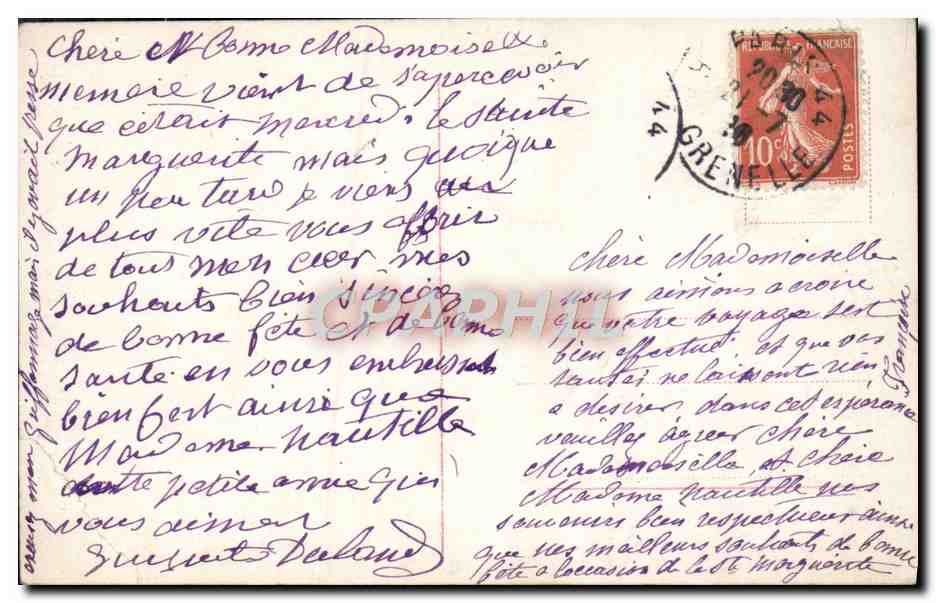 Chère et bonne Mademoiselle
memère vient de s'apercevoir
que cétait mercredi la Sainte
Marguerite mais quoique
un peu tard je viens au
plus vite vous offrir
de tous mon cœr mes
souhaits bien sincère
de bonne fête et de bonne
santé en vous embrassant
bien fort ainsi que
Madame Nautille
votre petite amie qui
vous aimer
excusez mon griffonnage mais il y avait presse
Chère Mademoiselle
nous aimons a croire
que votre voyage s'est
bien effectué, et que vos
santés ne laissent rien
a désirer, dans cet espérance
veuillez agréer chère
Mademoiselle, et chère
Madame Nautille nos
souvenirs bien respectueux ainsi
que nos meilleurs souhaits de bonne
fête a l'occasion de la Ste Marguerite
Française
REPUBLIQUE FRANÇAISE
10c
POSTES
GRENELLE
44
44
CPAPHIL